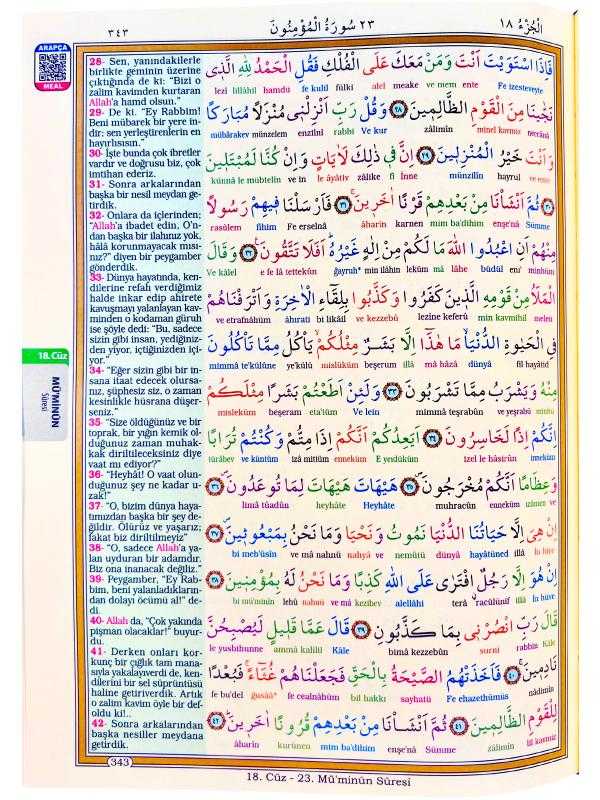 ٣٤٣
٢٣ سُورَةُ الْمُؤْمِنُونَ
اَلْجُزْءُ ١٨
ARAPÇA
MEAL
18. Cüz
MÜ'MİNÛN
Sûresi
28- Sen, yanındakilerle
birlikte geminin üzerine
çıktığında de ki: "Bizi o
zalim kavimden kurtaran
Allah'a hamd olsun."
29- De ki. "Ey Rabbim!
Beni mübarek bir yere in-
dir; sen yerleştirenlerin en
hayırlısısın."
30- İşte bunda çok ibretler
vardır ve doğrusu biz, çok
imtihan ederiz.
31- Sonra arkalarından
başka bir nesil meydan ge-
tirdik.
32- Onlara da içlerinden;
"Allah'a ibadet edin, O'n-
dan başka bir ilahınız yok,
hâlâ korunmayacak mısı-
nız?" diyen bir peygamber
gönderdik.
33- Dünya hayatında, ken-
dilerine refah verdiğimiz
halde inkar edip ahirete
kavuşmayı yalanlayan kav-
minden o kodaman güruh
ise şöyle dedi: "Bu, sadece
sizin gibi insan, yediğiniz-
den yiyor, içtiğinizden içi-
yor."
34- "Eğer sizin gibi bir in-
sana itaat edecek olursa-
nız, şüphesiz siz, o zaman
kesinlikle hüsrana düşer-
seniz."
35- "Size öldüğünüz ve bir
toprak, bir yığın kemik ol-
duğunuz zaman muhak-
kak diriltileceksiniz diye
vaat mı ediyor?"
36- "Heyhât! O vaat olun-
duğunuz şey ne kadar u-
zak!"
37- "O, bizim dünya haya-
tımızdan başka bir şey de-
ğildir. Ölürüz ve yaşarız;
fakat biz diriltilmeyiz"
38- "O, sadece Allah'a ya-
lan uyduran bir adamdır.
Biz ona inanacak değiliz."
39- Peygamber, "Ey Rab-
bim, beni yalanladıkların-
dan dolayı öcümü al!" de-
di.
40- Allah da, "Çok yakında
pişman olacaklar!" buyur-
du.
41- Derken onları kor-
kunç bir çığlık tam mana-
sıyla yakalayıverdi de, ken-
dilerini bir sel süprüntüsü
haline getiriverdik. Artık
o zalim kavim öyle bir def-
oldu ki!..
42- Sonra arkalarından
başka nesiller meydana
getirdik.
فَاِذَا اسْتَوَيْتَ اَنْتَ وَمَنْ مَعَكَ عَلَى الْفُلْكِ فَقُلِ الْحَمْدُ لِلّٰهِ الَّذ۪ى
Fe izesteveyte ente ve mem meake alel fülki fe kulil hamdü lillâhil lezî
نَجّٰينَا مِنَ الْقَوْمِ الظَّالِم۪ينَ ﴿٢٨﴾ وَقُلْ رَبِّ اَنْزِلْن۪ى مُنْزَلًا مُبَارَكًا
neccânâ minel kavmiz zâlimîn Ve kur rabbi enzilnî münzelem mübârakev
وَاَنْتَ خَيْرُ الْمُنْزِل۪ينَ ﴿٢٩﴾ اِنَّ ف۪ى ذٰلِكَ لَاٰيَاتٍ وَاِنْ كُنَّا لَمُبْتَل۪ينَ
ve ente hayrul münzilîn İnne fî zâlike le âyâtiv ve in künnâ le mübtelîn
﴿٣٠﴾ ثُمَّ اَنْشَأْنَا مِنْ بَعْدِهِمْ قَرْنًا اٰخَر۪ينَ ﴿٣١﴾ فَاَرْسَلْنَا ف۪يهِمْ رَسُولًا
Sümme enşe'nâ mim ba'dihim karnen âharîn Fe erselnâ fîhim rasûlem
مِنْهُمْ اَنِ اعْبُدُوا اللّٰهَ مَا لَكُمْ مِنْ اِلٰهٍ غَيْرُهُ اَفَلَا تَتَّقُونَ ﴿٣٢﴾ وَقَالَ
minhüm eni' büdül lâhe mâ leküm min ilâhin ğayruh* e fe lâ tettekûn Ve kâlel
الْمَلَاُ مِنْ قَوْمِهِ الَّذ۪ينَ كَفَرُوا وَكَذَّبُوا بِلِقَٓاءِ الْاٰخِرَةِ وَاَتْرَفْنَاهُمْ
meleü min kavmihil lezîne keferû ve kezzebû bi likâil âhırati ve etrafnâhüm
فِى الْحَيٰوةِ الدُّنْيَا مَا هٰذَٓا اِلَّا بَشَرٌ مِثْلُكُمْ يَأْكُلُ مِمَّا تَأْكُلُونَ
fil hayâtid dünyâ mâ hâzâ illâ beşerum mislüküm ye'külü mimmâ te'külûne
مِنْهُ وَيَشْرَبُ مِمَّا تَشْرَبُونَ ﴿٣٣﴾ وَلَئِنْ اَطَعْتُمْ بَشَرًا مِثْلَكُمْ
minhü ve yeşrabü mimmâ teşrabûn Ve lein eta'tüm beşeram misleküm
اِنَّكُمْ اِذًا لَخَاسِرُونَ ﴿٣٤﴾ اَيَعِدُكُمْ اَنَّكُمْ اِذَا مِتُّمْ وَكُنْتُمْ تُرَابًا
inneküm izel le hâsirûn E yeıdüküm enneküm izâ mittüm ve küntüm türâbev
وَعِظَامًا اَنَّكُمْ مُخْرَجُونَ ﴿٣٥﴾ هَيْهَاتَ هَيْهَاتَ لِمَا تُوعَدُونَ ﴿٣٦﴾
ve ızâmen enneküm muhracûn Heyhâte heyhâte limâ tûadûn
اِنْ هِىَ اِلَّا حَيَاتُنَا الدُّنْيَا نَمُوتُ وَنَحْيَا وَمَا نَحْنُ بِمَبْعُوث۪ينَ ﴿٣٧﴾
İn hiye illâ hayâtüned dünyâ nemûtü ve nahyâ ve mâ nahnü bi meb'ûsîn
اِنْ هُوَ اِلَّا رَجُلٌ افْتَرٰى عَلَى اللّٰهِ كَذِبًا وَمَا نَحْنُ لَهُ بِمُؤْمِن۪ينَ ﴿٣٨﴾
İn hüve illâ racülünif terâ alellâhi kezibev ve mâ nahnü lehû bi mü'minîn
قَالَ رَبِّ انْصُرْن۪ى بِمَا كَذَّبُونِ ﴿٣٩﴾ قَالَ عَمَّا قَل۪يلٍ لَيُصْبِحُنَّ
Kâle rabbin surnî bimâ kezzebûn Kâle ammâ kalîlil le yusbihunne
نَادِم۪ينَ ﴿٤٠﴾ فَاَخَذَتْهُمُ الصَّيْحَةُ بِالْحَقِّ فَجَعَلْنَاهُمْ غُثَٓاءً فَبُعْدًا
nâdimîn Fe ehazethümüs sayhatü bil hakkı fe cealnâhüm ğusââ* fe bu'del
لِلْقَوْمِ الظَّالِم۪ينَ ﴿٤١﴾ ثُمَّ اَنْشَأْنَا مِنْ بَعْدِهِمْ قُرُونًا اٰخَر۪ينَ ﴿٤٢﴾
lil kavmiz zâlimîn Sümme enşe'nâ mim ba'dihim kurûnen âharîn
343
18. Cüz - 23. Mü'minûn Sûresi